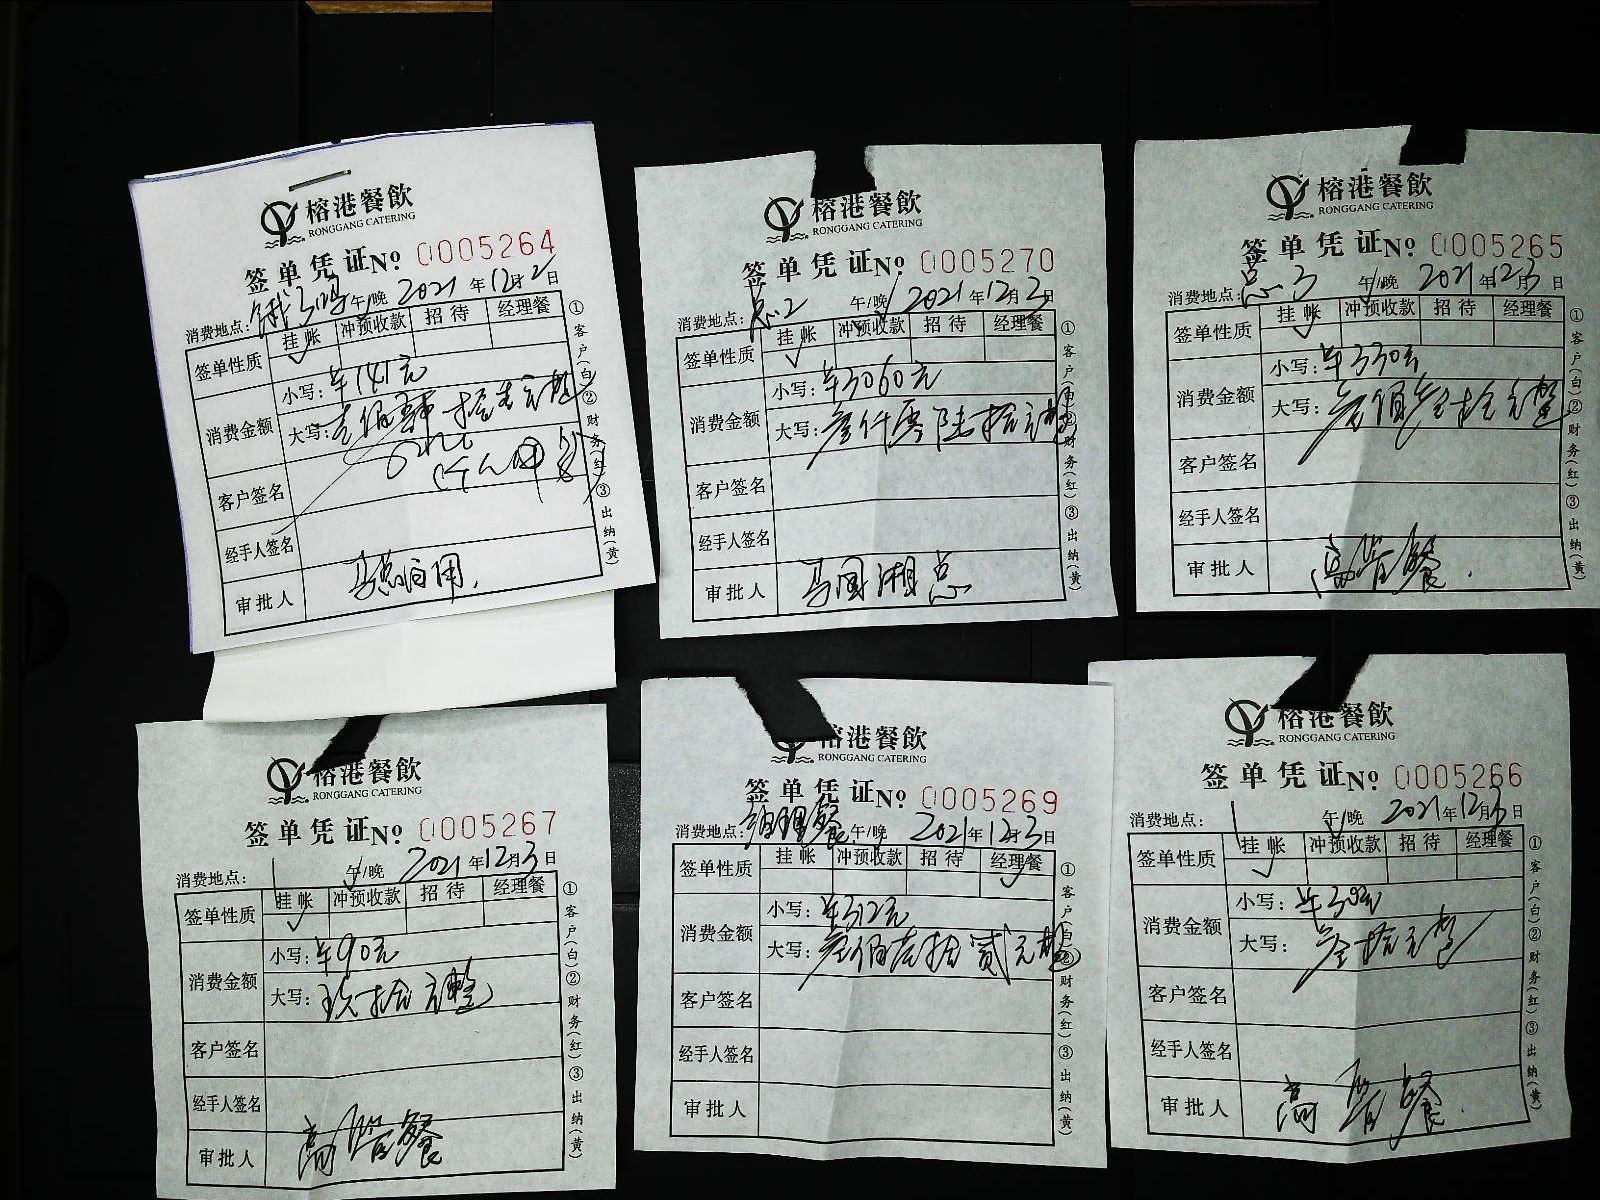 榕港餐飲
RONGGANG CATERING
签单凭证 No. 0005264
消费地点: 午/晚 2021年12月2日
签单性质 挂帐 冲预收款 招待 经理餐
✓
消费金额 小写: ¥141元
大写: 壹佰肆拾壹元整
客户签名
经手人签名
审批人 马总自用.
①客户(白)②财务(红)③出纳(黄)
榕港餐飲
RONGGANG CATERING
签单凭证 No. 0005270
消费地点: 总2 午/晚 2021年12月2日
签单性质 挂帐 冲预收款 招待 经理餐
✓
消费金额 小写: ¥3060元
大写: 叁仟零陆拾元整
客户签名
经手人签名
审批人 马国湘总
①客户(白)②财务(红)③出纳(黄)
榕港餐飲
RONGGANG CATERING
签单凭证 No. 0005265
消费地点: 总3 午/晚 2021年12月3日
签单性质 挂帐 冲预收款 招待 经理餐
✓
消费金额 小写: ¥330元
大写: 叁佰叁拾元整
客户签名
经手人签名
审批人 高管餐.
①客户(白)②财务(红)③出纳(黄)
榕港餐飲
RONGGANG CATERING
签单凭证 No. 0005267
消费地点: 午/晚 2021年12月3日
签单性质 挂帐 冲预收款 招待 经理餐
✓
消费金额 小写: ¥90元
大写: 玖拾元整
客户签名
经手人签名
审批人 高管餐
①客户(白)②财务(红)③出纳(黄)
榕港餐飲
RONGGANG CATERING
签单凭证 No. 0005269
消费地点: 经理餐 午/晚 2021年12月3日
签单性质 挂帐 冲预收款 招待 经理餐
✓
消费金额 小写: ¥312元
大写: 叁佰壹拾贰元整
客户签名
经手人签名
审批人
①客户(白)②财务(红)③出纳(黄)
榕港餐飲
RONGGANG CATERING
签单凭证 No. 0005266
消费地点: 午/晚 2021年12月3日
签单性质 挂帐 冲预收款 招待 经理餐
✓
消费金额 小写: ¥30元
大写: 叁拾元整
客户签名
经手人签名
审批人 高管餐.
①客户(白)②财务(红)③出纳(黄)